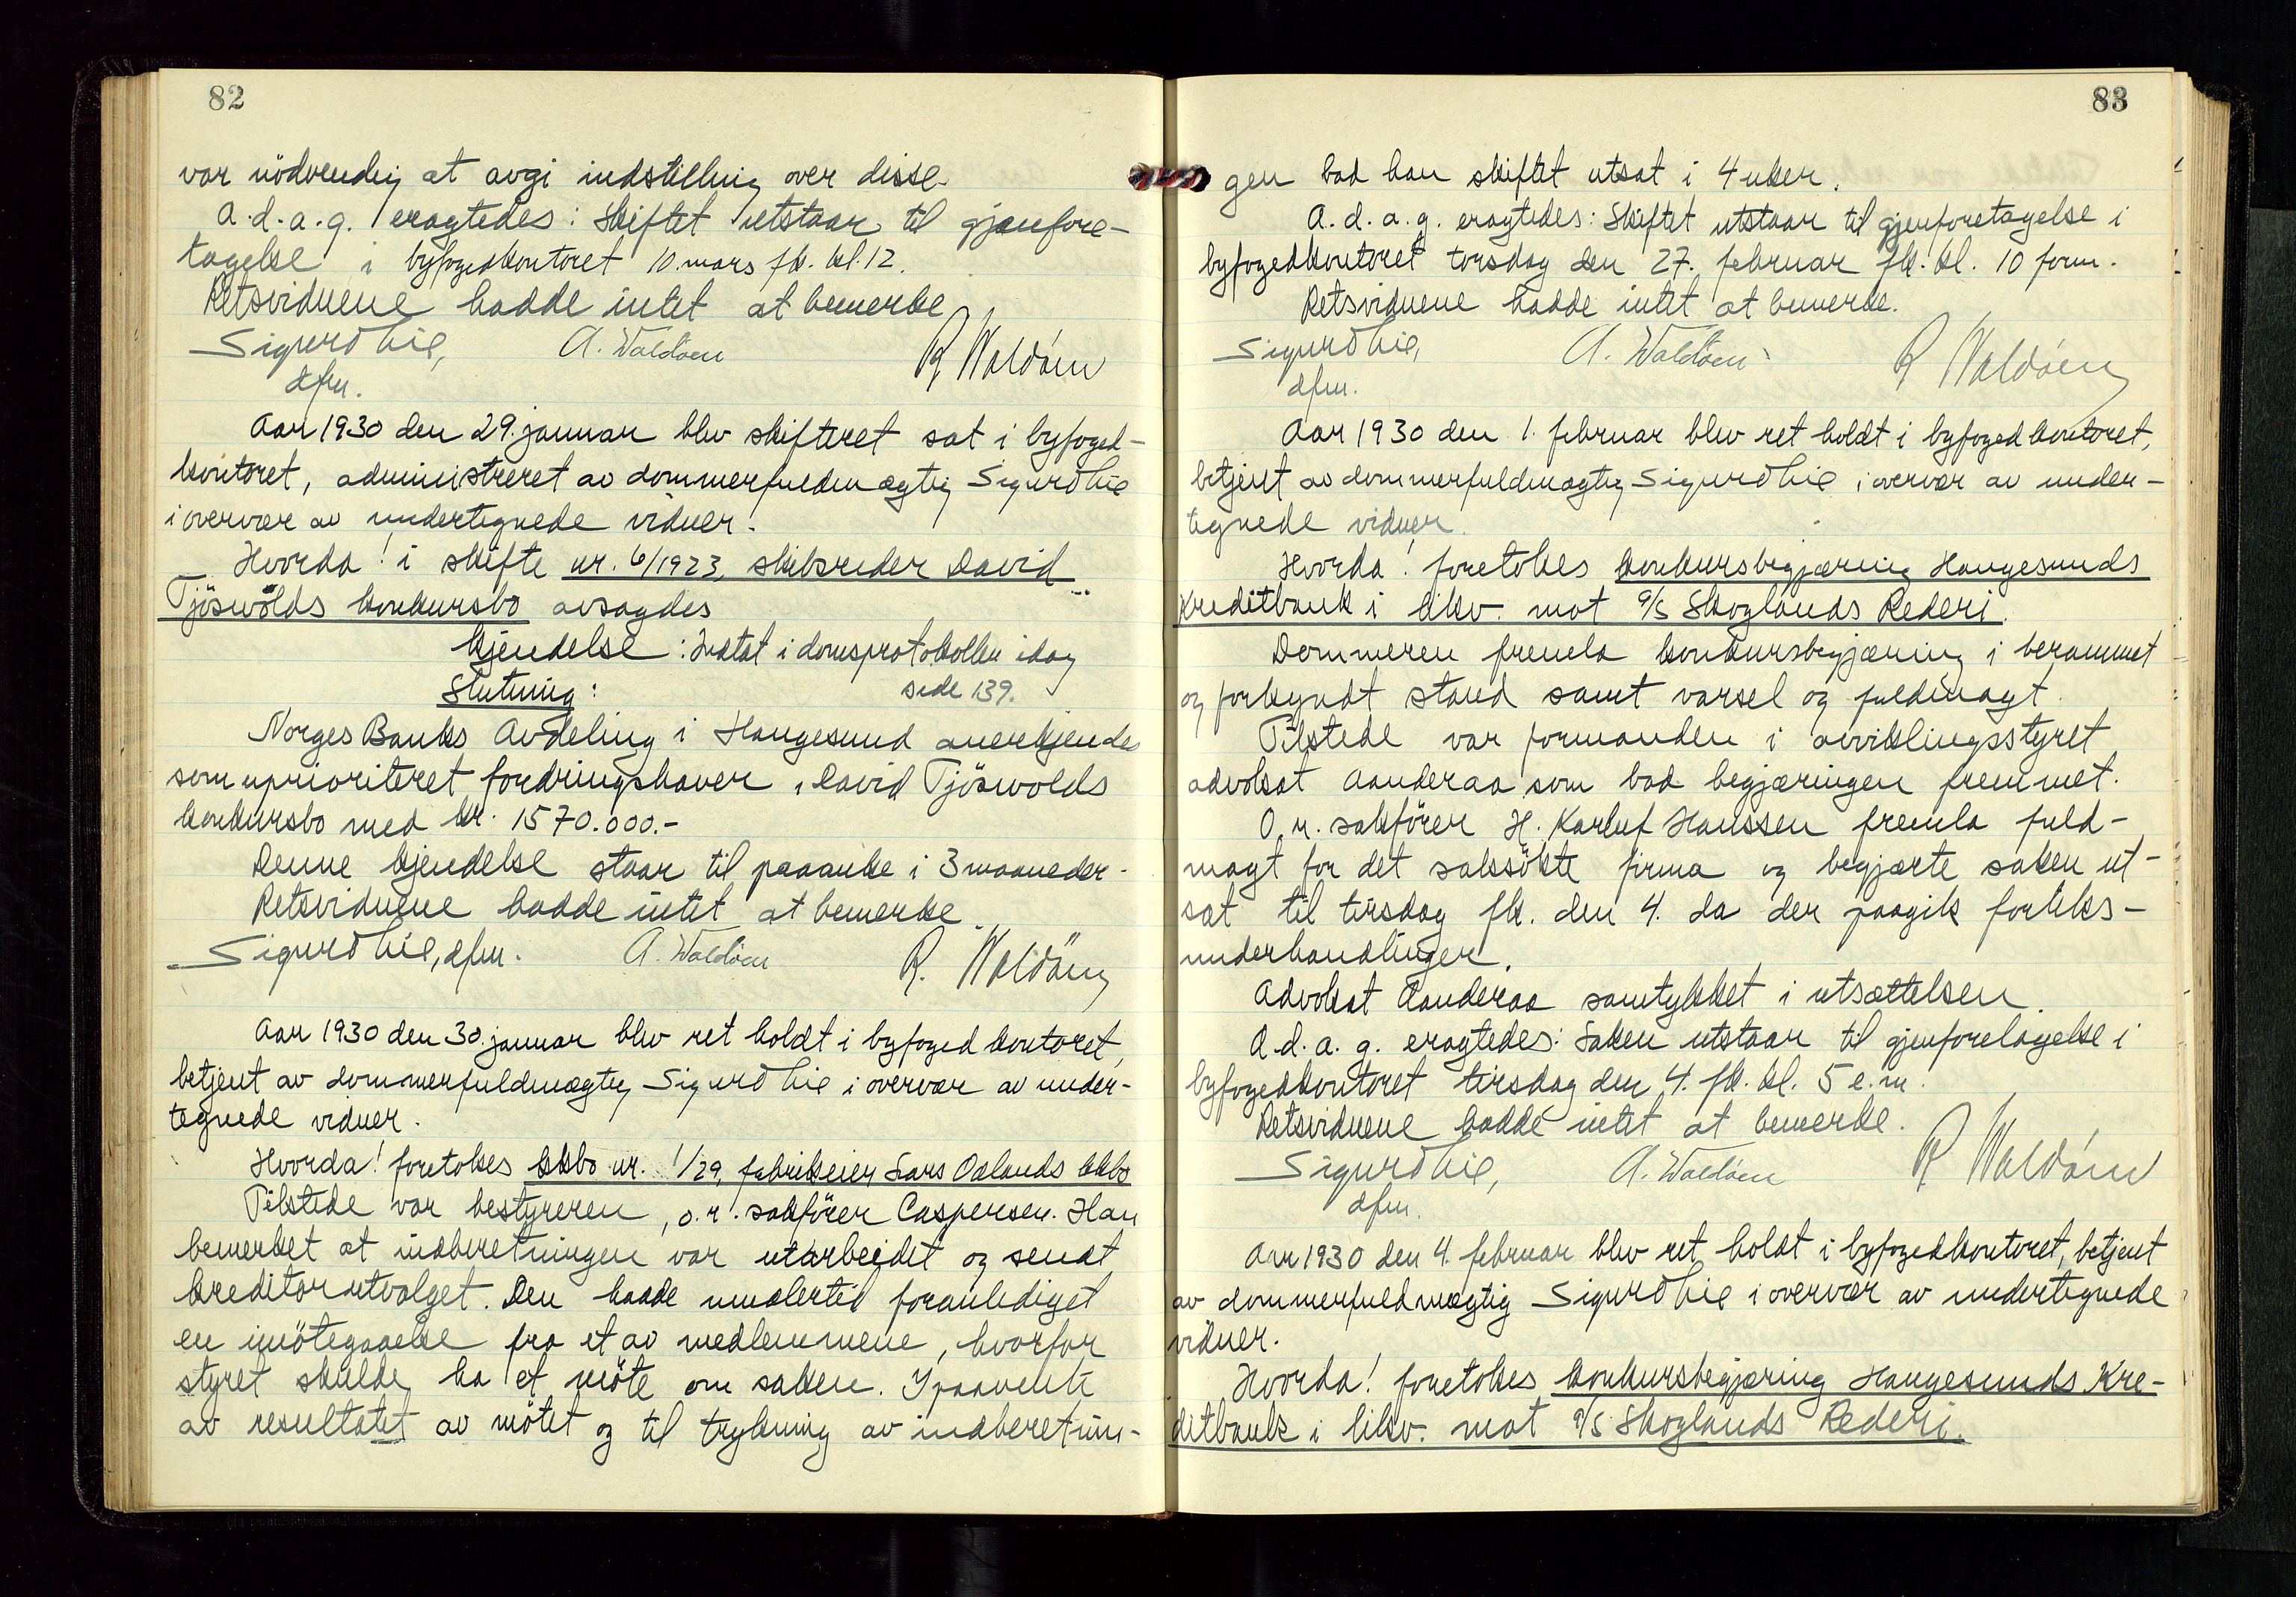 82
var nödvendig at avgi indstilling over disse.
A.d.a.g. eragtedes: Skiftet utstaar til gjenfore-
tagelse i byfogedkontoret 10. mars fk. kl. 12.
Retsvidnene hadde intet at bemerke
Sigurd Lie, A. Waldöen R Waldöen
dfm.
Aar 1930 den 29. januar blev skifteret sat i byfoged-
kontoret, administreret av dommerfuldmægtig Sigurd Lie
i overvær av undertegnede vidner.
Hvorda! i skifte nr. 6/1923, skibsreder David
Tjöswolds konkursbo avsagdes
kjendelse: Indtat i domsprotokollen idag
Slutning: side 139.
Norges Banks Avdeling i Haugesund anerkjendes
som uprioriteret fordringshaver i David Tjöswolds
konkursbo med kr. 1570.000.-
Denne kjendelse staar til paaanke i 3 maaneder.
Retsvidnene hadde intet at bemerke.
Sigurd Lie, dfm. A. Waldöen R. Waldöen
Aar 1930 den 30. januar blev ret holdt i byfogedkontoret,
betjent av dommerfuldmægtig Sigurd Lie i overvær av under-
tegnede vidner.
Hvorda! foretokes kkbo nr. 1/29, fabrikeier Lars Oalands kkbo
Tilstede var bestyreren, o.r. sakförer Caspersen. Han
bemerket at indberetningen var utarbeidet og sendt
kreditorutvalget. Den hadde imidlertid foranlediget
en imötegaaelse fra et av medlemmene, hvorfor
styret skulde ha et möte om saken. I paavente
av resultatet av mötet og til trykning av indberetnin-
83
gen bad han skiftet utsat i 4 uker.
A.d.a.g. eragtedes: Skiftet utstaar til gjenforetagelse i
byfogedkontoret torsdag den 27. februar fk. kl. 10 form.
Retsvidnene hadde intet at bemerke.
Sigurd Lie, A. Waldöen R Waldöen
dfm.
Aar 1930 den 1. februar blev ret holdt i byfogedkontoret,
betjent av dommerfuldmægtig Sigurd Lie i overvær av under-
tegnede vidner.
Hvorda! foretokes konkursbegjæring Haugesunds
Kreditbank i likv. mot A/S Skoglands Rederi.
Dommeren fremla konkursbegjæring i berammet
og forkyndt stand samt varsel og fuldmagt.
Tilstede var formanden i avviklingsstyret
advokat Aanderaa som bad begjæringen fremmet.
O.r. sakförer H. Karluf Hanssen fremla fuld-
magt for det saksökte firma og begjærte saken ut-
sat til tirsdag fk. den 4. da der paagik forliks-
underhandlinger.
Advokat Aanderaa samtykket i utsættelsen
A.d.a.g. eragtedes: Saken utstaar til gjenforetagelse i
byfogedkontoret tirsdag den 4. fk. kl. 5 e.m.
Retsvidnene hadde intet at bemerke.
Sigurd Lie, A. Waldöen R Waldöen
dfm.
Aar 1930 den 4. februar blev ret holdt i byfogedkontoret, betjent
av dommerfuldmægtig Sigurd Lie i overvær av undertegnede
vidner.
Hvorda! foretokes konkursbegjæring Haugesunds Kre-
ditbank i likv. mot A/S Skoglands Rederi.